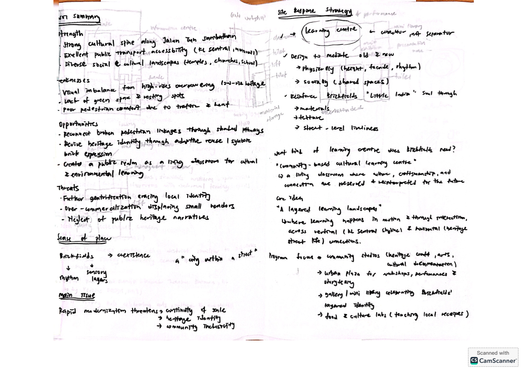 Strength
- Strong cultural spine along Jalan Tun Sambanthan
- Excellent public transport accessibility (KL Sentral, monorail)
- Diverse social & cultural landscapes (temples, churches, schools)
Weaknesses
- Visual imbalance from high-rises overpowering low-rise heritage
- Lack of green & resting spots
- Poor pedestrian comfort due to traffic & heat
Opportunities
- Reconnect broken pedestrian linkages through shaded
- Revive heritage identity through adaptive reuse /
brick expression
- Create a public realm as a living classroom for cultural
& environmental learning
Threats
- Further gentrification erasing local identity
- Over-commercialization displacing small vendors
- Neglect of public heritage narratives
Sense of place
Brickfields → coexistence
a "city within a street"
rhythm
sensory
layers
Main Issue
Rapid modernization threatens → continuity of scale
→ heritage identity
→ community inclusivity
Site Response Strategy
→ Learning centre → connector not separator
- Design to mediate old & new
→ Physically (height, facade, rhythm)
→ Socially (shared spaces)
- Reinforce Brickfields' "Little India" soul through
→ materials
→ texture
→ street-level liveliness
What kind of learning centre does Brickfields need?
"Community-based cultural learning centre"
↳ a living classroom where culture, craftsmanship, and
connection are preserved & reinterpreted for the future
Core Idea
"A layered learning landscape"
↳ where learning happens in motion & through interaction,
across vertical (KL Sentral skyline) & horizontal (heritage
street life) connections.
Program focus → community studios (heritage craft, arts,
cultural documentation)
→ urban plaza for workshops, performances &
storytelling
→ gallery / mini library celebrating Brickfields'
layered identity
→ food & culture labs (teaching local recipes)
Scanned with
CS CamScanner